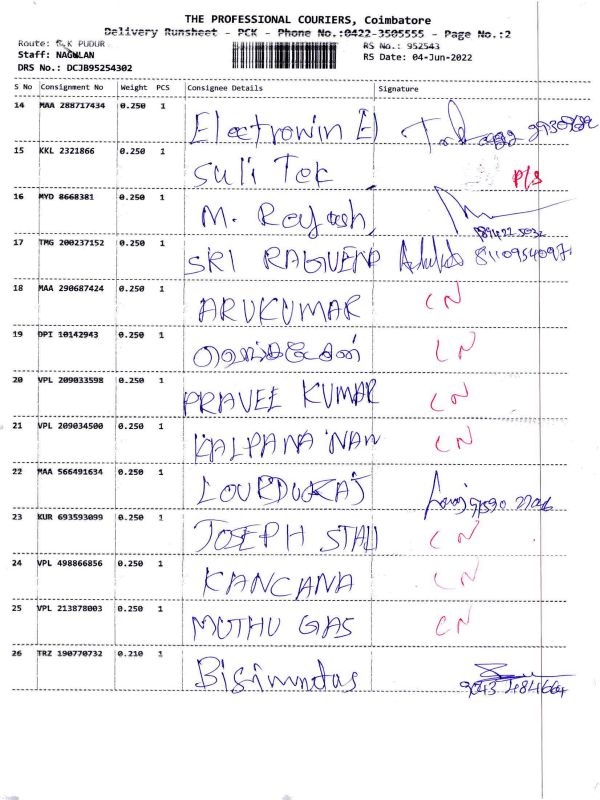 THE PROFESSIONAL COURIERS, Coimbatore
Delivery Runsheet - PCK - Phone No.:0422-3505555 - Page No.:2
Route: S.K PUDUR
RS No.: 952543
Staff: NAGULAN
RS Date: 04-Jun-2022
DRS No.: DCJB95254302
S No Consignment No Weight PCS Consignee Details Signature
14 MAA 288717434 0.250 1 Electrowin El
15 KKL 2321866 0.250 1 Suli Tek P/S
16 MYD 8668381 0.250 1 M. Rajesh
17 TMG 200237152 0.250 1 SRI RAGUEND
18 MAA 290687424 0.250 1 ARUKUMAR CN
19 DPI 10142943 0.250 1 CN
20 VPL 209033598 0.250 1 PRAVEE KUMAR CN
21 VPL 209034500 0.250 1 KALPANA NAN CN
22 MAA 566491634 0.250 1 LOURDUKAJ
23 KUR 693593099 0.250 1 JOSEPH STALI CN
24 VPL 498866856 0.250 1 KANCANA CN
25 VPL 213878003 0.250 1 MUTHU GAS CN
26 TRZ 190770732 0.210 1 Bisimindas
9043 484664